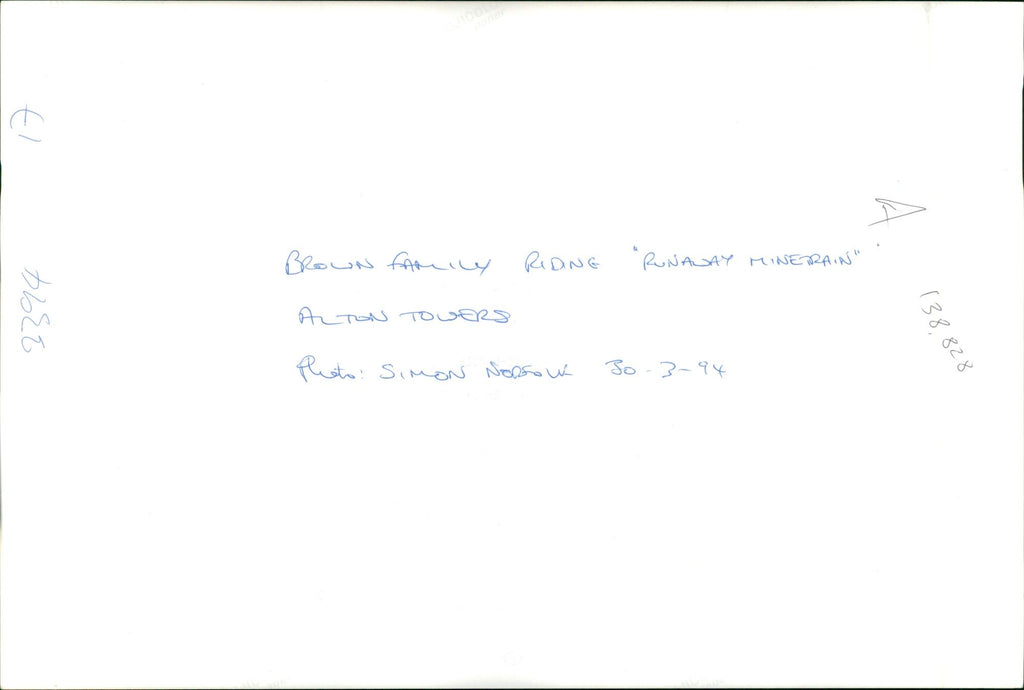 BROWN FAMILY RIDING "RUNAWAY MINETRAIN"
ALTON TOWERS
Photo: SIMON NORFOLK 30-3-94
A
138,828